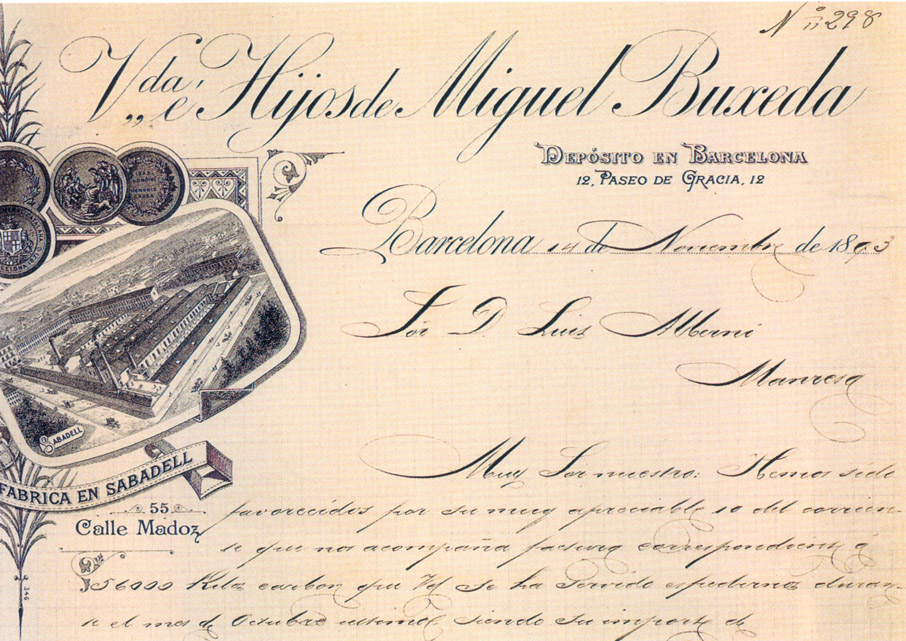 Nº 11298
Vda é Hijos de Miguel Buxeda
DEPÓSITO EN BARCELONA
12, PASEO DE GRACIA, 12
Barcelona 14 de Noviembre de 1893
Sor D. Luis Alberni
Manresa
SABADELL
FABRICA EN SABADELL
55
Calle Madoz
Muy Sor nuestro: Hemos sido
favorecidos por su muy apreciable 10 del corrien-
te que nos acompaña factura correspondiente á
56000 Kilos carbon que Vd se ha servido expedirnos duran-
te el mes de Octubre ultimo, siendo su importe de
346